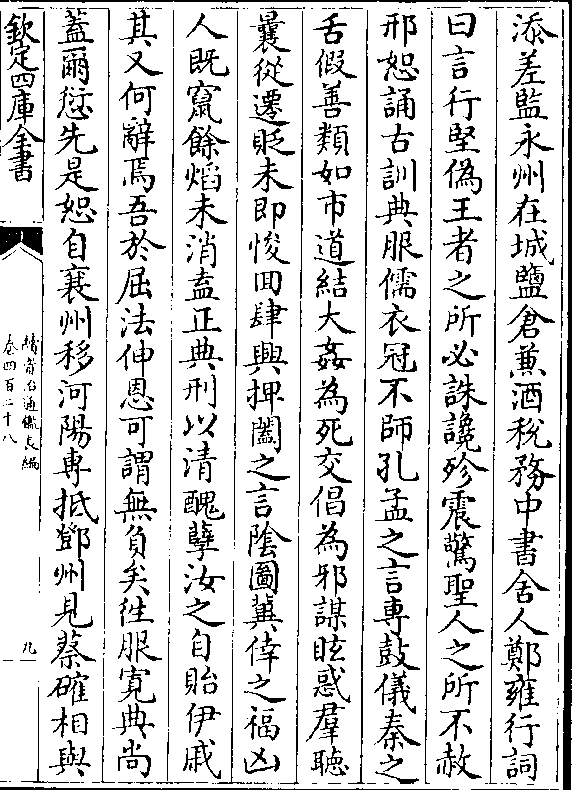 添差監永州在城鹽倉兼酒税務中書舍人鄭雍行詞
曰言行堅偽王者之所必誅讒殄震驚聖人之所不赦
邢恕誦古訓典服儒衣冠不師孔孟之言專鼓儀秦之
舌假善類如市道結大姦為死交倡為邪謀眩惑羣聽
曩從遷貶未即悛囬肆興捭闔之言陰圖冀倖之福凶
人既竄餘熖未消盍正典刑以清醜孽汝之自貽伊戚
其又何辭焉吾於屈法伸恩可謂無負矣徃服寛典尚
蓋爾愆先是恕自襄州移河陽專抵鄧州見蔡確相與
欽定四庫全書
續資治通鑑長編
卷四百二十八
九